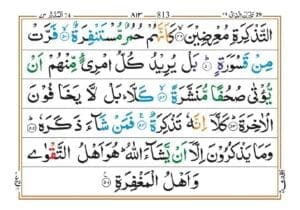 813 ٨١٣
التَّذْكِرَةِ مُعْرِضِيْنَ ۝٤٩ كَاَنَّهُمْ حُمُرٌ مُّسْتَنْفِرَةٌ ۝٥٠ فَرَّتْ
مِنْ قَسْوَرَةٍ ۝٥١ بَلْ يُرِيْدُ كُلُّ امْرِئٍ مِّنْهُمْ اَنْ
يُّؤْتٰى صُحُفًا مُّنَشَّرَةً ۝٥٢ كَلَّا ؕ بَلْ لَّا يَخَافُوْنَ
الْاٰخِرَةَ ۝٥٣ كَلَّاۤ اِنَّهٗ تَذْكِرَةٌ ۝٥٤ فَمَنْ شَآءَ ذَكَرَهٗ ۝٥٥
وَمَا يَذْكُرُوْنَ اِلَّاۤ اَنْ يَّشَآءَ اللّٰهُ ؕ هُوَ اَهْلُ التَّقْوٰى
وَاَهْلُ الْمَغْفِرَةِ ۝٥٦